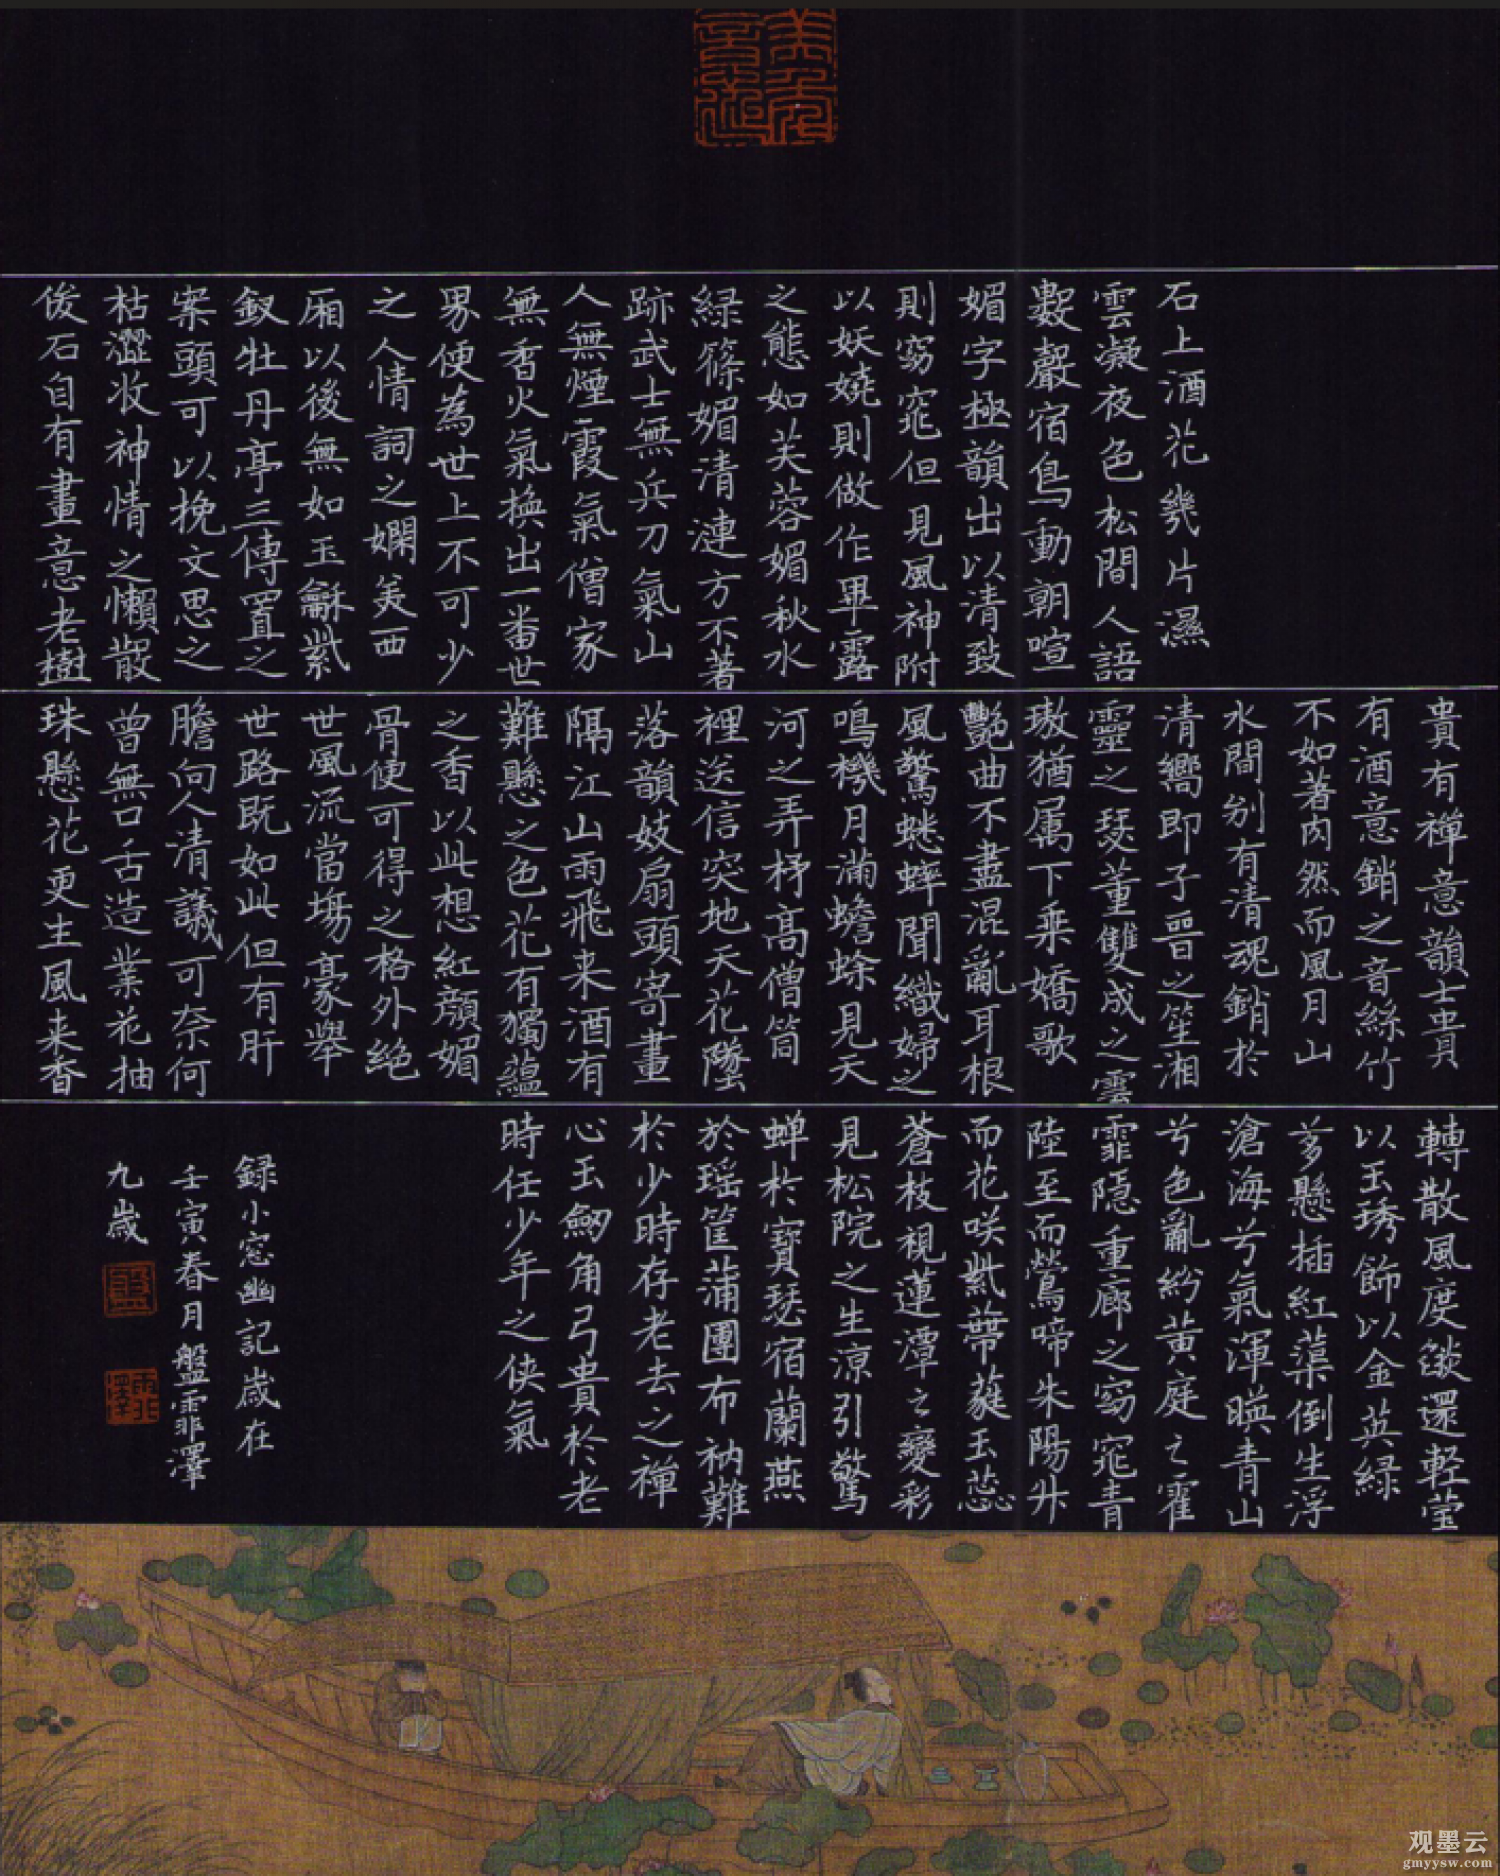 石上酒花幾片濕
雲凝夜色松間人語
數聲宿鳥動朝喧
媚字極韻出以清致
則窈窕但見風神附
以妖嬈則做作畢露
之態如芙蓉媚秋水
緑篠媚清漣方不著
跡武士無兵刀氣山
人無煙霞氣僧家
無香火氣換出一番世
界便為世上不可少
之人情詞之嫻美西
厢以後無如玉龢紫
釵牡丹亭三傳置之
案頭可以挽文思之
枯澀收神情之懶散
俊石自有畫意老樹
貴有禪意韻士貴
有酒意銷之音絲竹
不如著肉然而風月山
水間别有清魂銷於
清嚮即子晉之笙湘
靈之瑟董雙成之雲
璈猶属下乗嬌歌
艷曲不盡混亂耳根
風驚蟋蟀聞織婦之
鳴機月滿蟾蜍見天
河之弄杼高僧筒
裡送信突地天花墜
落韻妓扇頭寄畫
隔江山雨飛来酒有
難懸之色花有獨蘊
之香以此想紅顏媚
骨便可得之格外絶
世風流當塲豪舉
世路既如此但有肝
膽向人清議可奈何
曾無口舌造業花抽
珠懸花更生風来香
轉散風度燄還軽莹
以玉琇飾以金英緑
芰懸插紅蕖倒生浮
滄海兮氣渾暎青山
兮色亂紛黃庭之霍
霏隱重廊之窈窕青
陸至而鶯啼朱陽升
而花咲紫蔕蕤玉蕊
蒼枝視蓮潭之變彩
見松院之生凉引驚
蝉於寶瑟宿蘭燕
於瑶筐蒲團布衲難
於少時存老去之禪
心玉劒角弓貴於老
時任少年之侠氣
録小窓幽記歳在
壬寅春月盤霏澤
九歳
盤
霏澤
观墨云
gmyysw.com